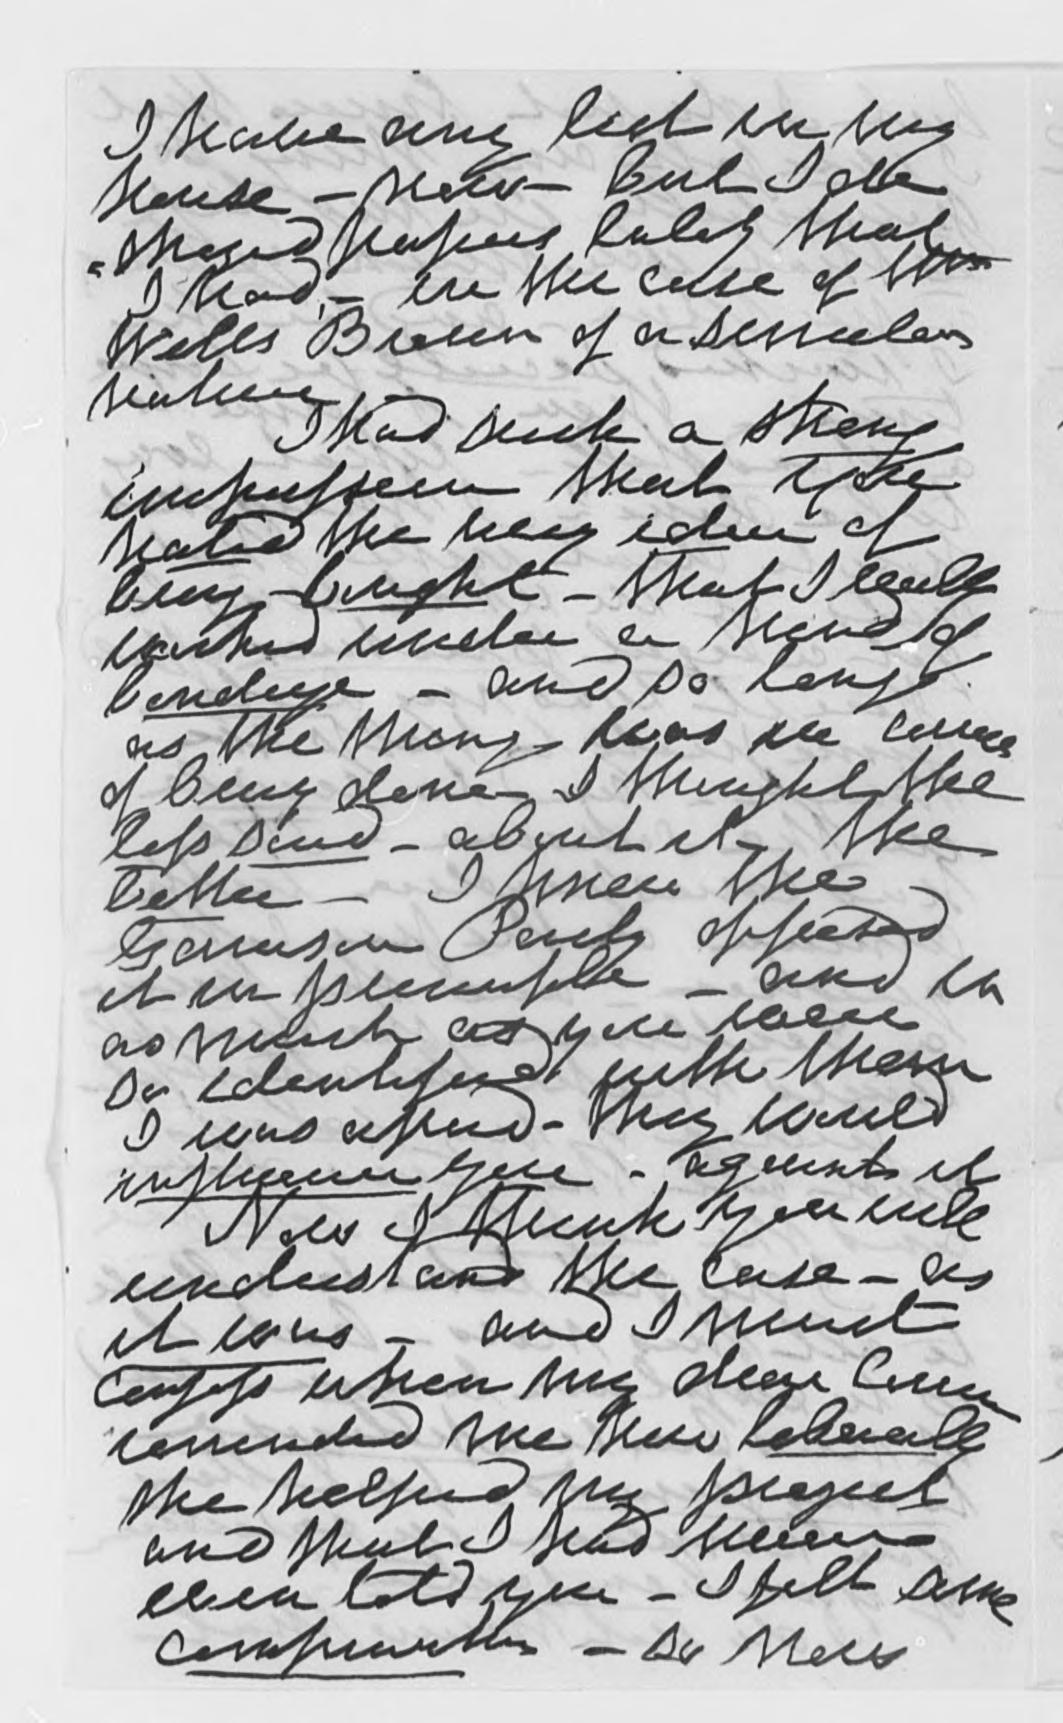 I have any list in my
house – now – but I do
find papers lately that
I had, – in the case of Wm
Wells Brown of a similar
nature
I had such a strong
impression that you
hated the very idea of
being bought – that I really
worked under a kind of
bondage – and so long
as the thing was in course
of being done I thought the
less said – about it – the
better – I knew the
Garrison Party opposed
it in principle – and in
as much as you were
so identified with them
I was afraid – they would
influence you – against it
Now I think you will
understand the case – as
it was – and I must
confess when my dear
reminded me how liberally
she helped my project
and that I had never
even told you – I felt some
compunction – so now